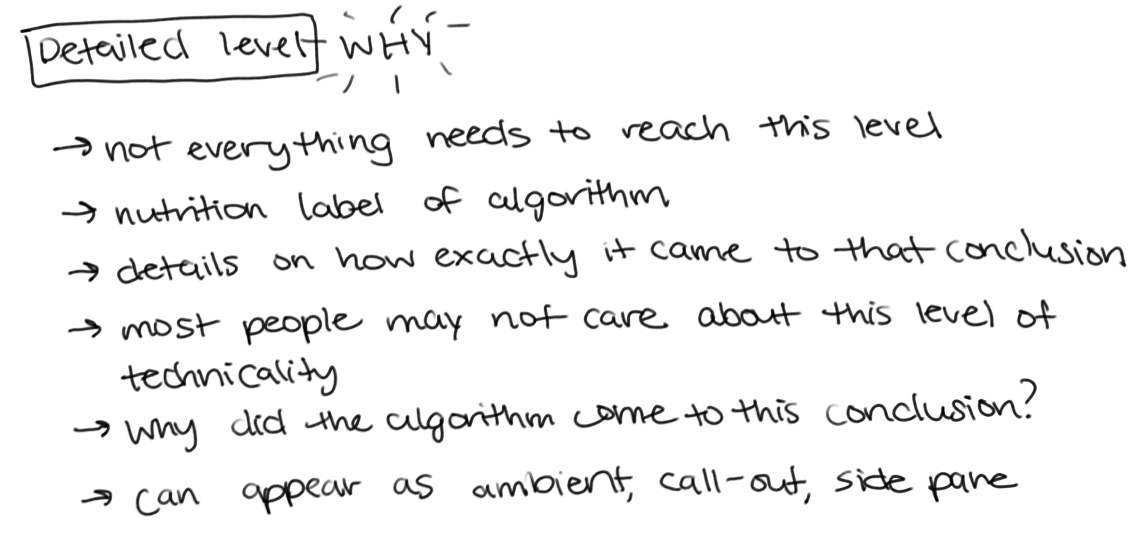 Detailed level WHY
→ not everything needs to reach this level
→ nutrition label of algorithm
→ details on how exactly it came to that conclusion
→ most people may not care about this level of
technicality
→ why did the algorithm come to this conclusion?
→ can appear as ambient, call-out, side pane